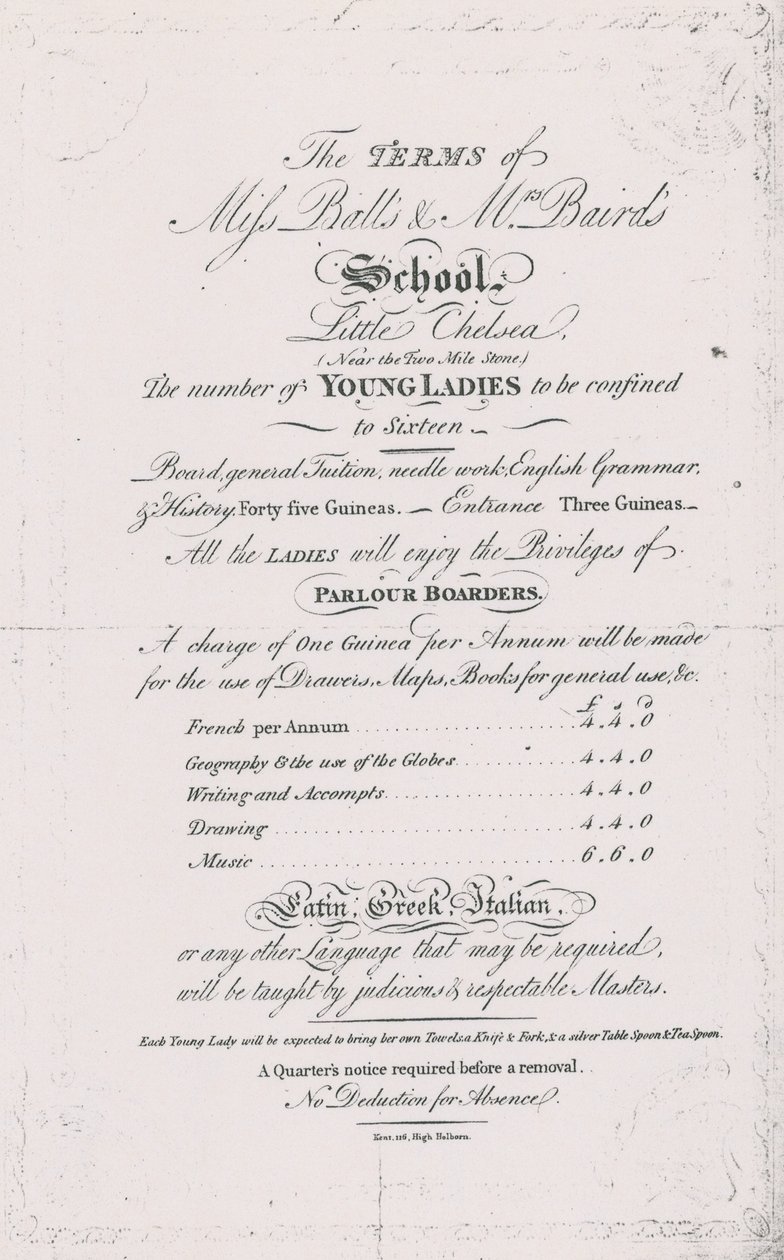 The TERMS of
Miſs Ball's & Mrs. Baird's
School,
Little Chelsea,
(Near the Two Mile Stone.)
The number of YOUNG LADIES to be confined
to Sixteen
Board, general Tuition, needle work, English Grammar,
& History, Forty five Guineas. — Entrance Three Guineas. —
All the LADIES will enjoy the Privileges of
PARLOUR BOARDERS.
A charge of One Guinea per Annum will be made
for the use of Drawers, Maps, Books for general use, &c.
£ s D
French per Annum 4 . 4 . 0
Geography & the use of the Globes 4 . 4 . 0
Writing and Accompts 4 . 4 . 0
Drawing 4 . 4 . 0
Music 6 . 6 . 0
Latin, Greek, Italian,
or any other Language that may be required,
will be taught by judicious & respectable Masters.
Each Young Lady will be expected to bring her own Towels, a Knife & Fork, & a silver Table Spoon & Tea Spoon.
A Quarter's notice required before a removal.
No Deduction for Absence.
Kent, 116, High Holborn.